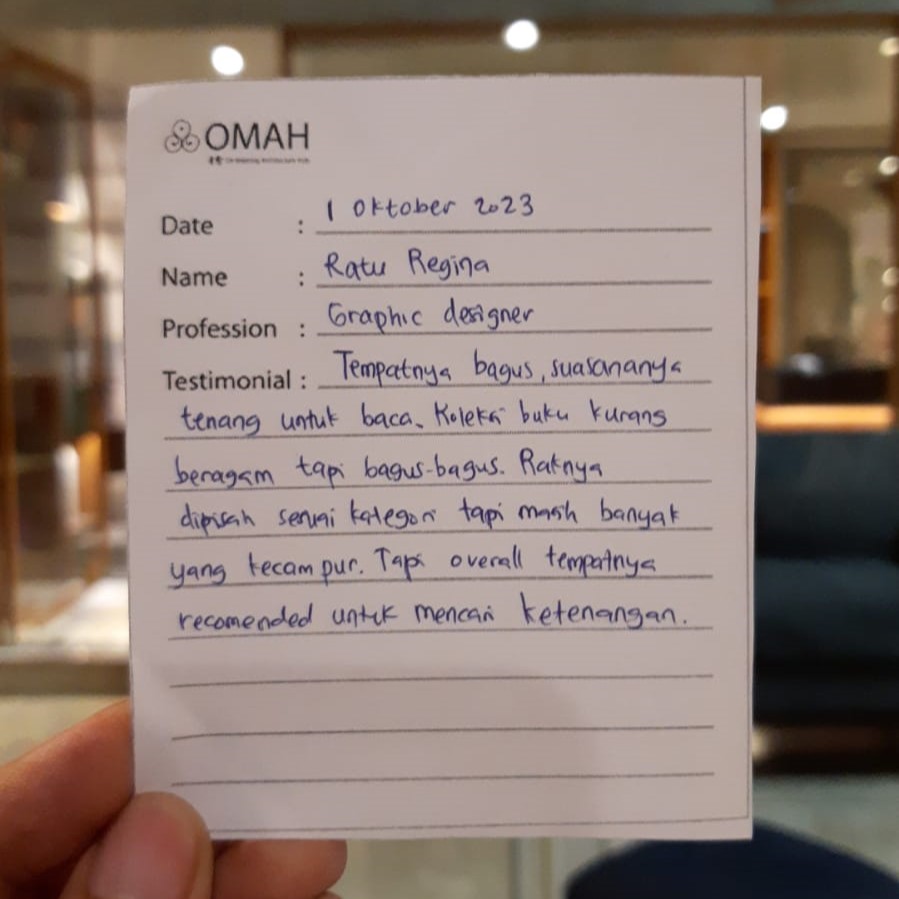 OMAH
Date : 1 Oktober 2023
Name : Ratu Regina
Profession : Graphic designer
Testimonial : Tempatnya bagus, suasananya
tenang untuk baca. Koleksi buku kurang
beragam tapi bagus-bagus. Raknya
dipisah sesuai kategori tapi masih banyak
yang kecampur. Tapi overall tempatnya
recomended untuk mencari ketenangan.